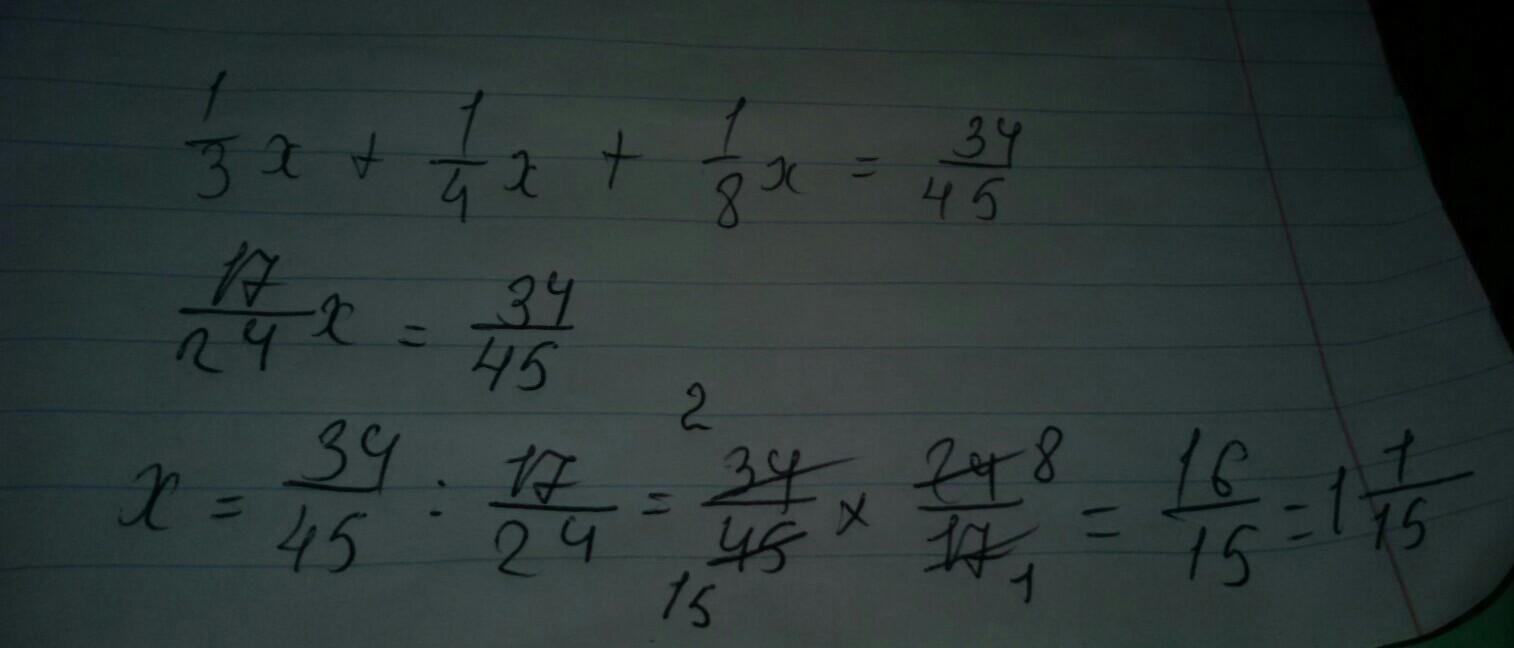 1/3 x + 1/4 x + 1/8 x = 34/45
17/24 x = 34/45
x = 34/45 : 17/24 = 34/45 2 15 × 24/17 8 1 = 16/15 = 1 1/15